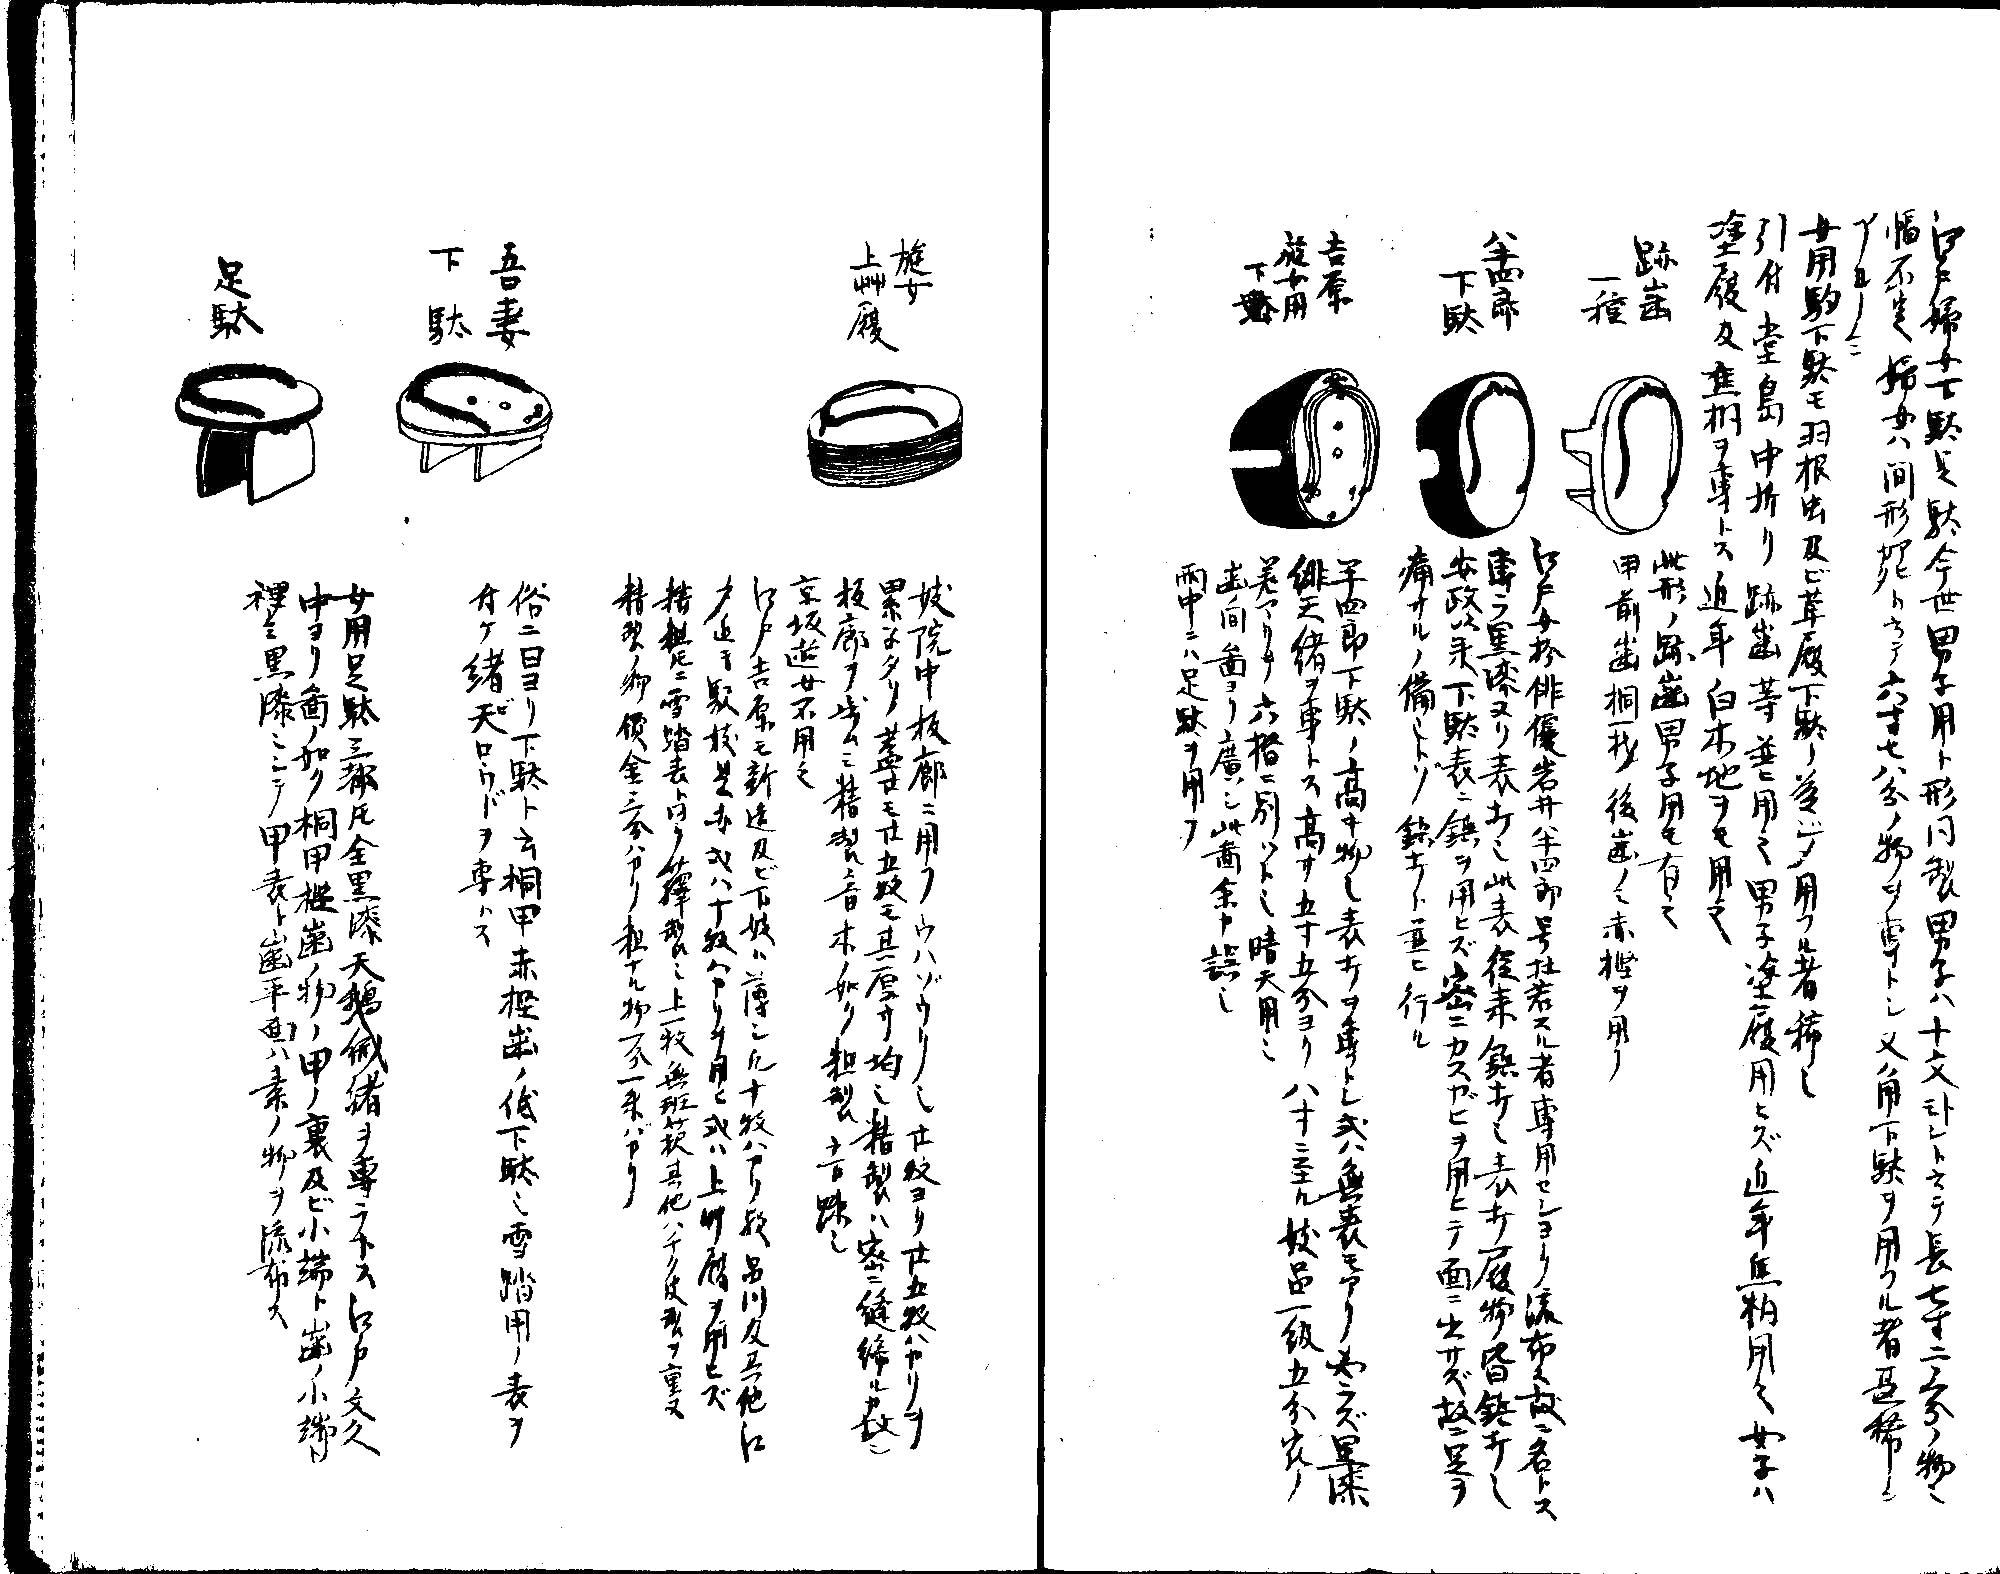 江戸婦女下駄足駄今世男子用ト形同製男子ハ十文トシテ長七寸二分ノ物ニ
幅不定婦女ハ間形トシテ六寸七八分ノ物ヲ専トシ又角下駄ヲ用フル者甚稀ニ
アルノミ
女用駒下駄モ羽根虫及ビ草履下駄ノ差ノミ用フル者稀也
引付堂島中折リ跡歯等並ニ用之男子塗履用ヒズ近年焦柄用之女子ハ
塗履及焦桐ヲ専トス近年白木地ヲモ用之
跡歯
一種
此形ノ跡歯男子用モ有之
甲前歯桐一枚後歯ノミ赤樫ヲ用フ
半四郎
下駄
江戸女扮俳優岩井半四郎号杜若スル者専用セシヨリ流布ス故ニ名トス
専ラ黒漆ヌリ表打也此表従来鋲打也表打履物皆鋲打也
安政以来下駄表ニ鋲ヲ用ヒズ密ニカスガヒヲ用ヒテ面ニ出サズ故ニ足ヲ
痛サルノ備ヘトゾ鋲打ト並ビ行ル
吉原
遊女用
下駄
半四郎下駄ノ高キ物也表打ヲ専トシ或ハ無表モアリ必ラズ黒漆
緋天緒ヲ専トス高サ五寸五分ヨリ八寸ニ至ル妓品一級五分宛ノ
差アリテ六階ニ別ツトゾ晴天用也
歯間図ヨリ広シ此図余カ誤也
雨中ニハ足駄ヲ用フ
遊女
上草履
妓院中板廊ニ用フウハゾウリ也廿枚ヨリ廿五枚バカリヲ
累ネタリ蓋廿モ廿五枚モ其厚サ均シ精製ハ密ニ縫締ル故ニ
板廊ヲ歩ムニ精製音木ノ如ク粗製ハ音鈍シ
京坂遊女不用之
江戸吉原モ新造及ビ下妓ハ薄シ凡十枚バカリ歟品川及其他江
戸近キ駅妓是亦或ハ十枚バカリヲ用ヒ或ハ上草履ヲ用ヒズ
精粗トモニ雪踏表ト同ク籜製也上一枚無斑籜其他ハチク皮製ヲ重ヌ
精製ノ物価金三分バカリ粗ナル物一分一朱バカリ
吾妻
下駄
俗ニ日ヨリ下駄ト云桐甲赤樫歯ノ低下駄也雪踏用ノ表ヲ
付ケ緒天ビロウドヲ専トス
足駄
女用足駄三都トモ全黒漆天鵝絨緒ヲ専ラトス江戸文久
中ヨリ図ノ如ク桐甲樫歯ノ物ノ甲ノ裏及ビ小端ト歯ノ小端トノ
裡ヲミ黒漆ニシテ甲表ト歯平面ハ素ノ物ヲ流布ス